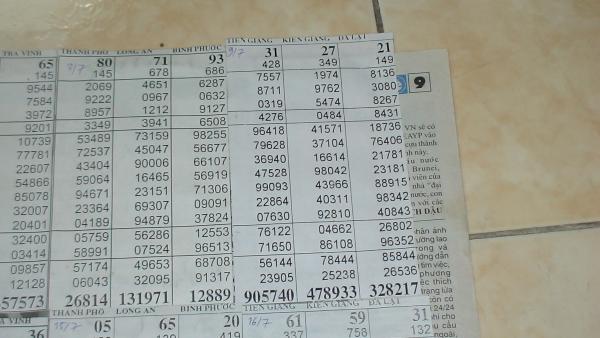 TRÀ VINH THÀNH PHỐ LONG AN BÌNH PHƯỚC TIỀN GIANG KIÊN GIANG ĐÀ LẠT
65 8/7 80 71 93 9/7 31 27 21
145 145 678 686 428 349 149
9544 2069 4651 6287 7557 1974 8136
7584 9222 0967 0632 8711 9762 3080 9
3972 8957 1212 9127 0319 5474 8267
9201 3349 3941 6508 4276 0484 8431
10739 53489 73159 98255 96418 41571 18736 VN sẽ có
77781 72537 45047 56677 79628 37104 76406
22607 43404 90006 66107 36940 16614 21781
54866 59064 16465 56919 47528 98042 23181 Brunei,
85078 94671 23151 71306 99093 43966 88915
32007 23364 69307 09091 22864 40311 98342
20401 04189 94879 37824 07630 92810 40843
32400 05759 56286 12553 76122 04662 26802
03414 58991 07524 96513 71650 86108 96352
09857 57174 49653 68708 56144 78444 85844
12128 06043 32095 91317 23905 25238 26536
57573 26814 131971 12889 905740 478933 328217
TRÀ VINH THÀNH PHỐ LONG AN BÌNH PHƯỚC TIỀN GIANG KIÊN GIANG ĐÀ LẠT
36 15/7 05 65 20 16/7 61 59 31
419 337 758 132